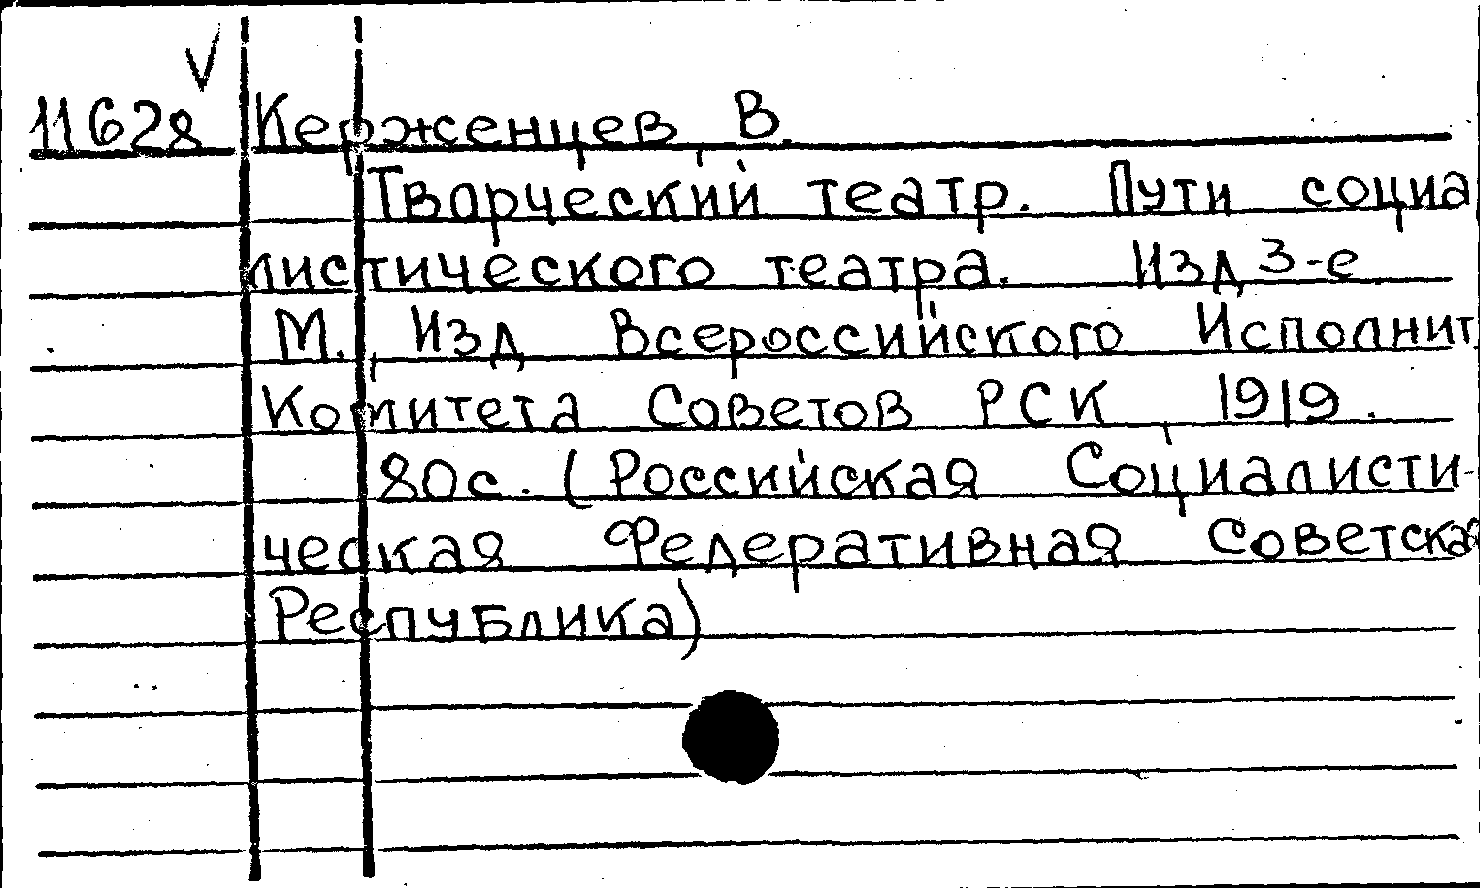 V
11628 Керженцев, В.
Творческий театр. Пути социа
листического театра. Изд 3-е
М., Изд Всероссийского Исполнит
Комитета Советов РСК, 1919.
80с. (Российская Социалисти-
ческая Федеративная Советская
Республика)